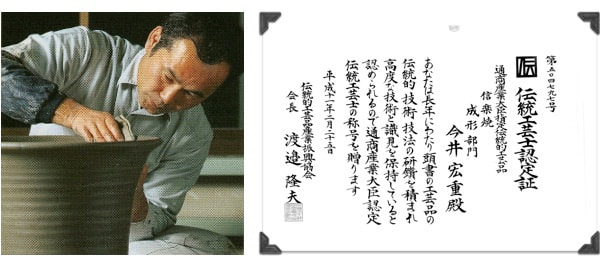 第五〇四七九七号
伝
伝統工芸士認定証
通商産業大臣指定伝統的工芸品
信楽焼
成形部門
今井宏重殿
あなたは長年にわたり頭書の工芸品の
伝統的技術・技法の研鑽を積まれ
高度な技術と識見を保持していると
認められるので通商産業大臣認定
伝統工芸士の称号を贈ります
平成十一年二月二十五日
伝統的工芸品産業振興協会
会長 渡邉隆夫